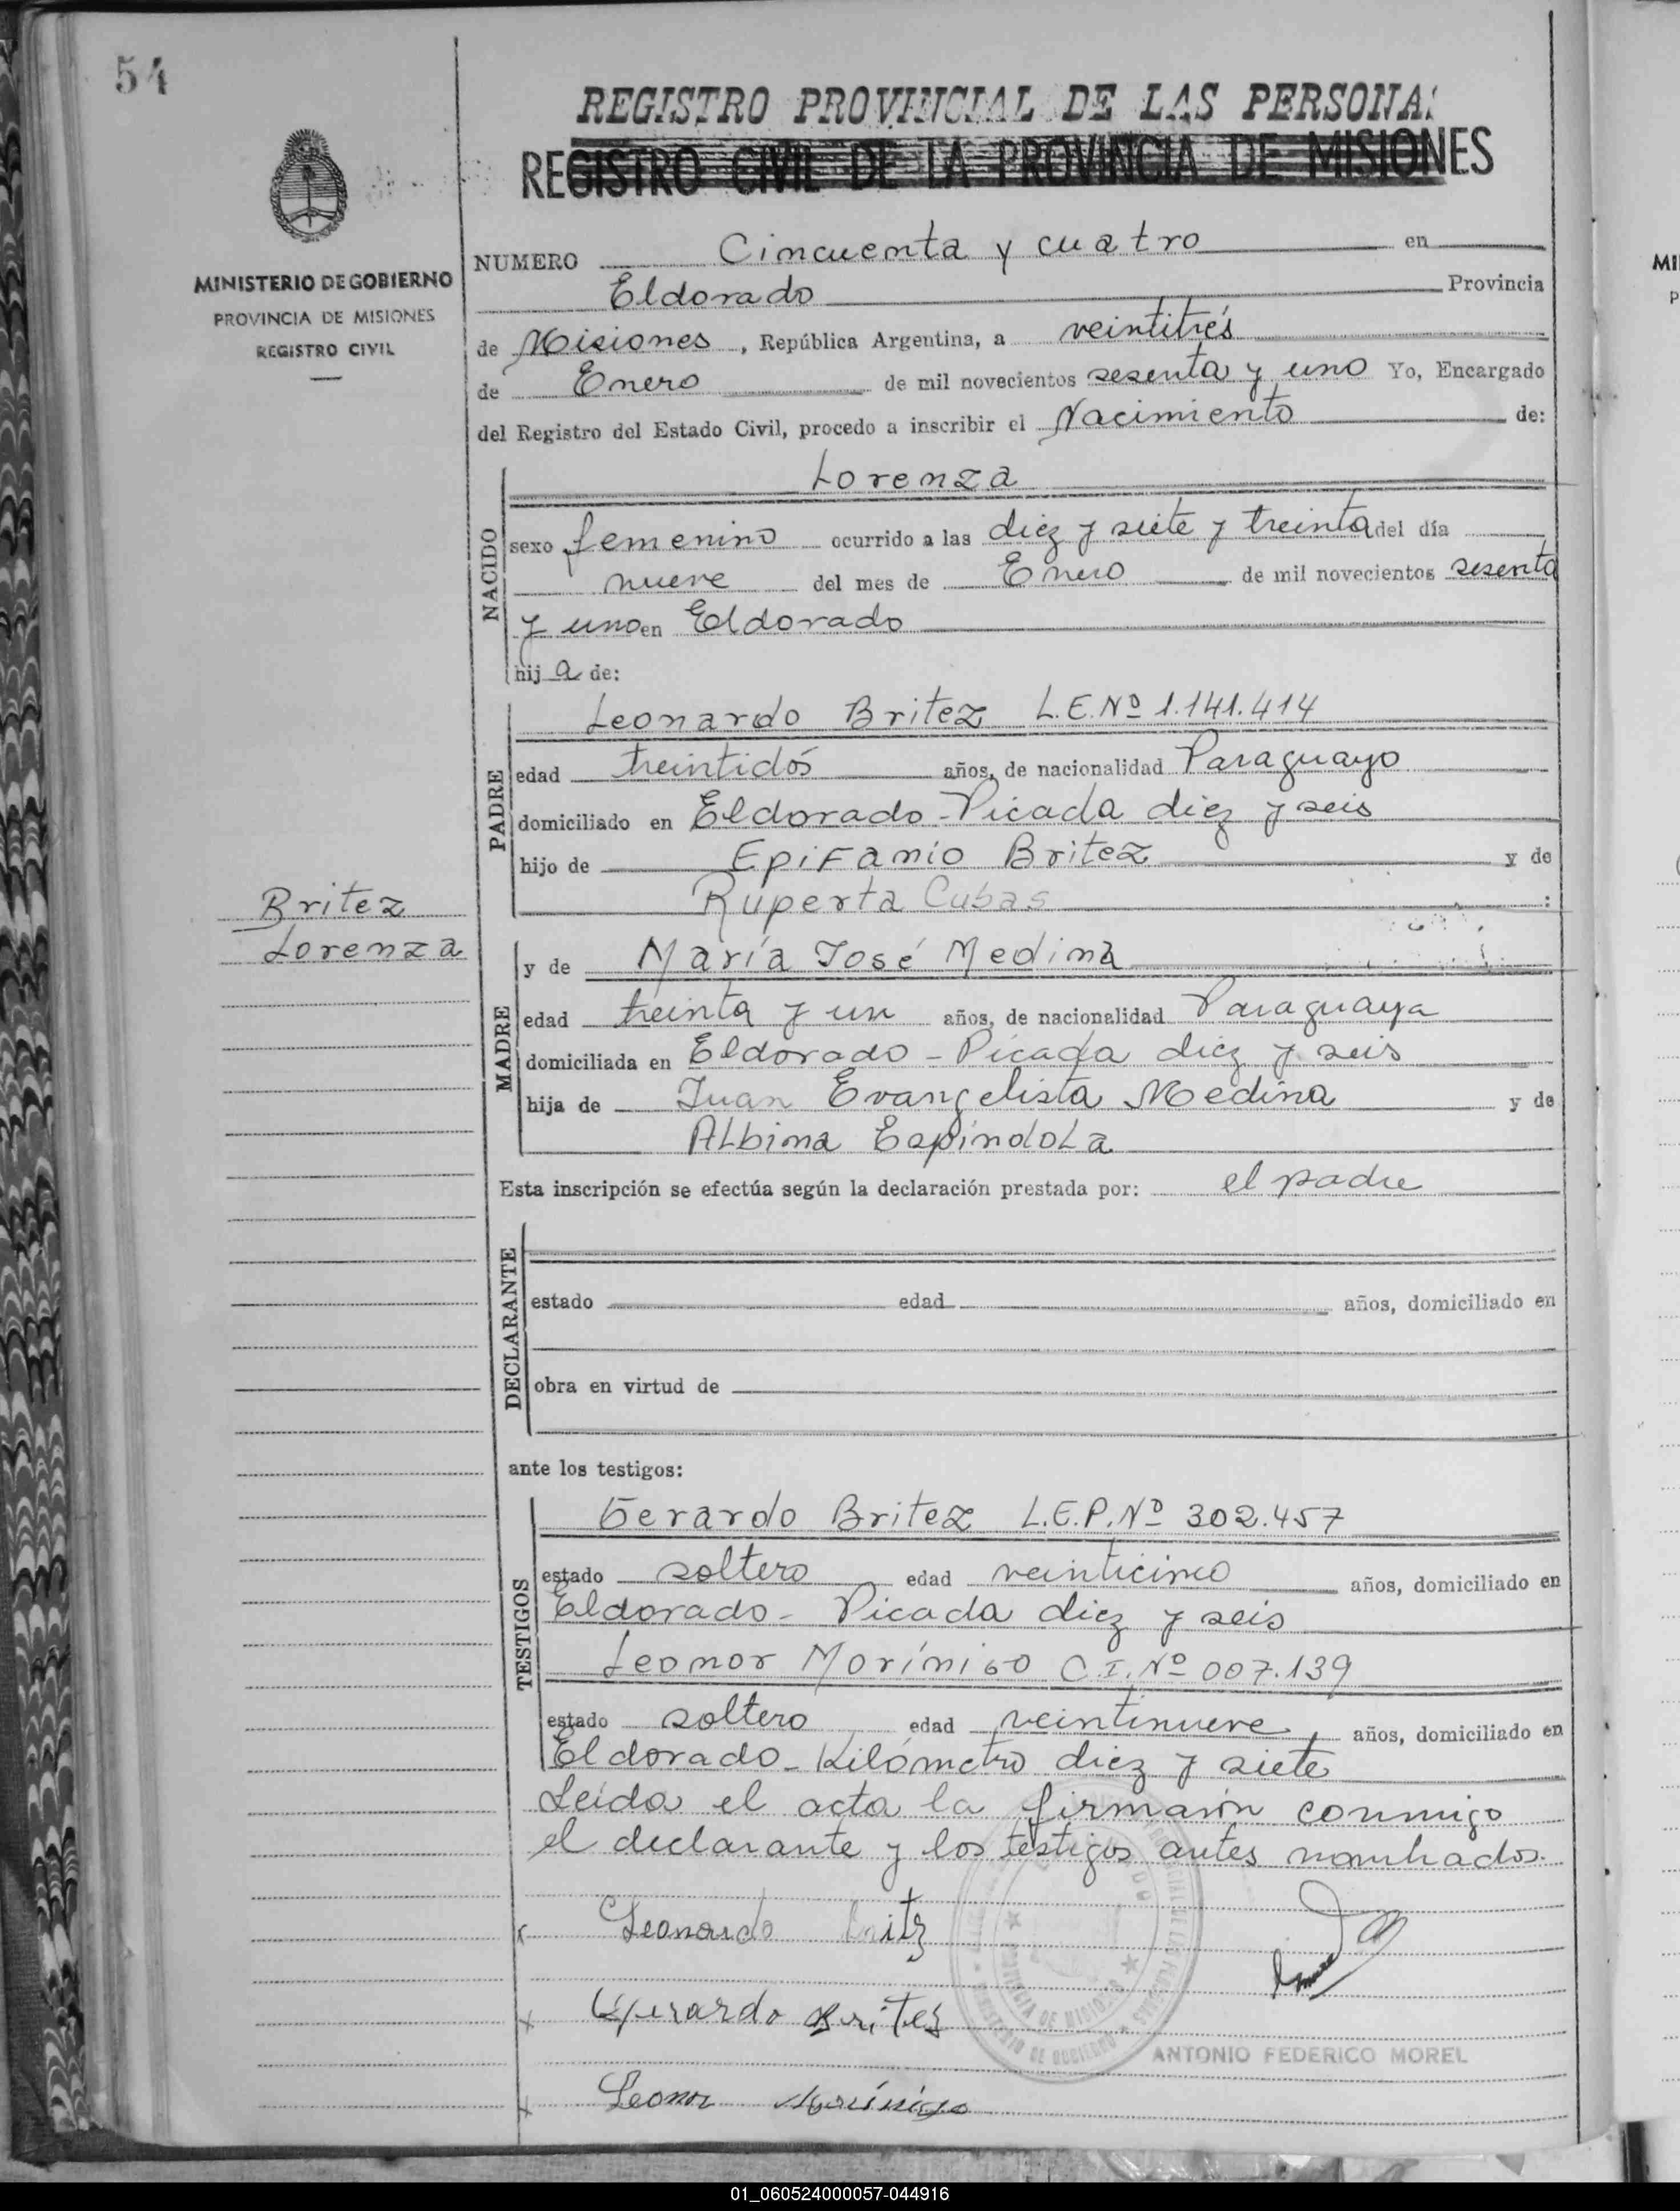 54
REGISTRO PROVINCIAL DE LAS PERSONAS
REGISTRO CIVIL DE LA PROVINCIA DE MISIONES
MINISTERIO DE GOBIERNO
PROVINCIA DE MISIONES
REGISTRO CIVIL
NUMERO Cincuenta y cuatro en
Eldorado Provincia
de Misiones, República Argentina, a veintitrés
de Enero de mil novecientos sesenta y uno Yo, Encargado
del Registro del Estado Civil, procedo a inscribir el Nacimiento de:
NACIDO
Lorenza
sexo femenino ocurrido a las diez y siete y treinta del día
nueve del mes de Enero de mil novecientos sesenta
y uno en Eldorado
hija de:
PADRE
Leonardo Britez L.E. Nº 1.141.414
edad treintidós años, de nacionalidad Paraguayo
domiciliado en Eldorado - Picada diez y seis
hijo de Epifanio Britez y de
Ruperta Cubas :
Britez
Lorenza
MADRE
y de María José Medina
edad treinta y un años, de nacionalidad Paraguaya
domiciliada en Eldorado - Picada diez y seis
hija de Juan Evangelista Medina y de
Albina Espíndola
Esta inscripción se efectúa según la declaración prestada por: el padre
DECLARANTE
estado edad años, domiciliado en
obra en virtud de
ante los testigos:
TESTIGOS
Gerardo Britez L.E.P. Nº 302.457
estado soltero edad veinticinco años, domiciliado en
Eldorado - Picada diez y seis
Leonor Morínigo C.I. Nº 007.139
estado soltero edad veintinueve, años, domiciliado en
Eldorado - Kilómetro diez y siete
Leída el acta la firmaron conmigo
el declarante y los testigos antes nombrados.
x Leonardo Britz
x Gerardo Brites
ANTONIO FEDERICO MOREL
x Leonor Morínigo
01_060524000057-044916